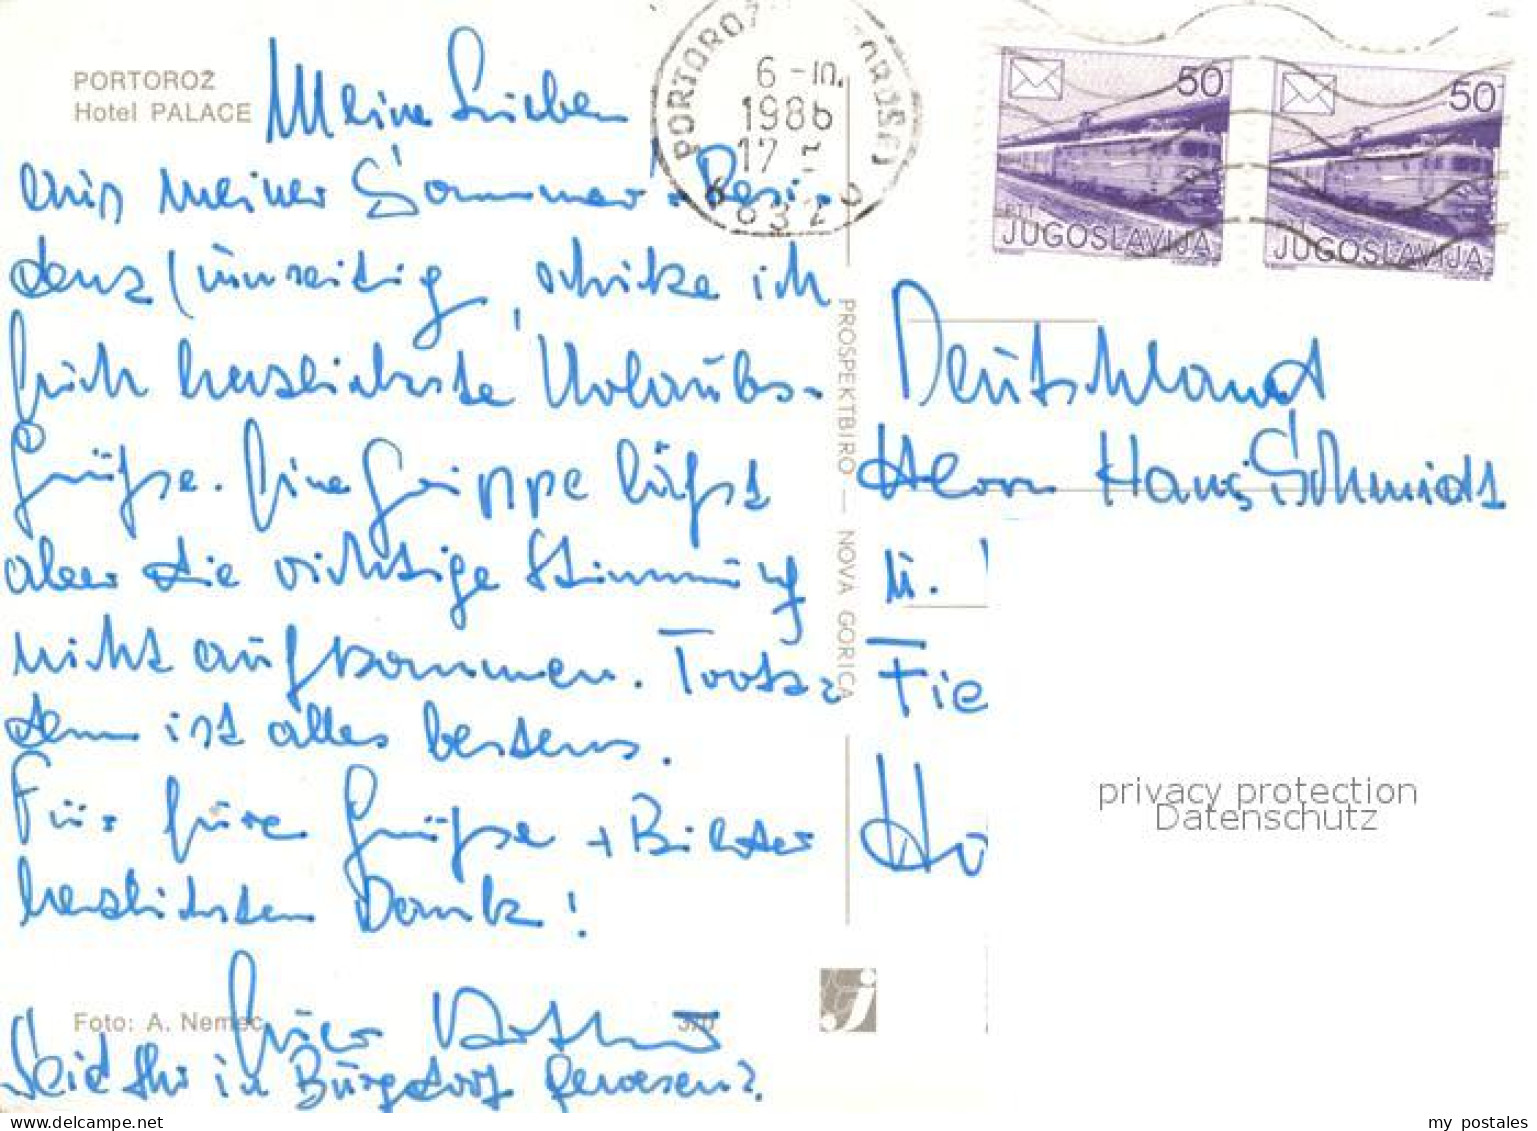 PORTOROŽ
Hotel PALACE
Meine Lieben
aus meiner Sommer-Resi-
denz (unzeitig, schicke ich
Euch herzlichste Urlaubs-
grüße. Eine Grippe läßt
aber die richtige Stimmung
nicht aufkommen. Trotz-
dem ist alles bestens.
Für Eure Grüße + Bilder
herzlichsten Dank!
Euer
Seid Ihr in Burgdorf gewesen?
Foto: A. Nemec
370
PROSPEKTBIRO — NOVA GORICA
6-10.
1986
17
50
JUGOSLAVIJA
50
JUGOSLAVIJA
Deutschland
Herrn Hans Schmidt
u.
Fie
Ho
privacy protection
Datenschutz
www.delcampe.net
my_postales